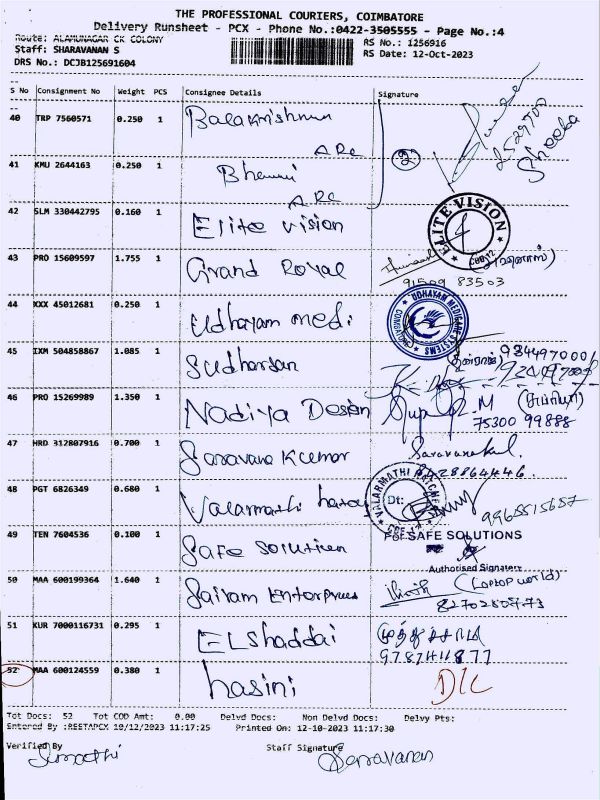 THE PROFESSIONAL COURIERS, COIMBATORE
Delivery Runsheet - PCX - Phone No.:0422-3505555 - Page No.:4
Route: ALAMUNAGAR CK COLONY
RS No.: 1256916
Staff: SHARAVANAN S
RS Date: 12-Oct-2023
DRS No.: DCJB125691604
S No Consignment No Weight PCS Consignee Details Signature
40 TRP 7560571 0.250 1 Balakrishnan
ARC
41 KMU 2644163 0.250 1 Bhavani
ARC
Sheeba
42 SLM 330442795 0.160 1 Elite Vision
ELITE VISION
43 PRO 15609597 1.755 1 Grand Royal
91509 83503
44 KXX 45012681 0.250 1 Udhayam medi
UDHAYAM MEDICARE SYSTEMS
45 IXM 504858867 1.085 1 Sudharsan
46 PRO 15269989 1.350 1 Nadiya Design
75300 99888
47 HRD 312807916 0.700 1 Saravana Kumar
48 PGT 6826349 0.680 1 Valarmathi
VALARMATHI
Dt:
9965515657
49 TEN 7604536 0.100 1 Safe Solution
For SAFE SOLUTIONS
Authorised Signatory
50 MAA 600199364 1.640 1 Sairam Enterprises
(Laptop world)
51 KUR 7000116731 0.295 1 ELShaddai
52 MAA 600124559 0.380 1 hasini
D/C
Tot Docs: 52 Tot COD Amt: 0.00 Delvd Docs: Non Delvd Docs: Delvy Pts:
Entered By :REETAPCX 10/12/2023 11:17:25 Printed On: 12-10-2023 11:17:30
Verified By
Staff Signature
Saravanan